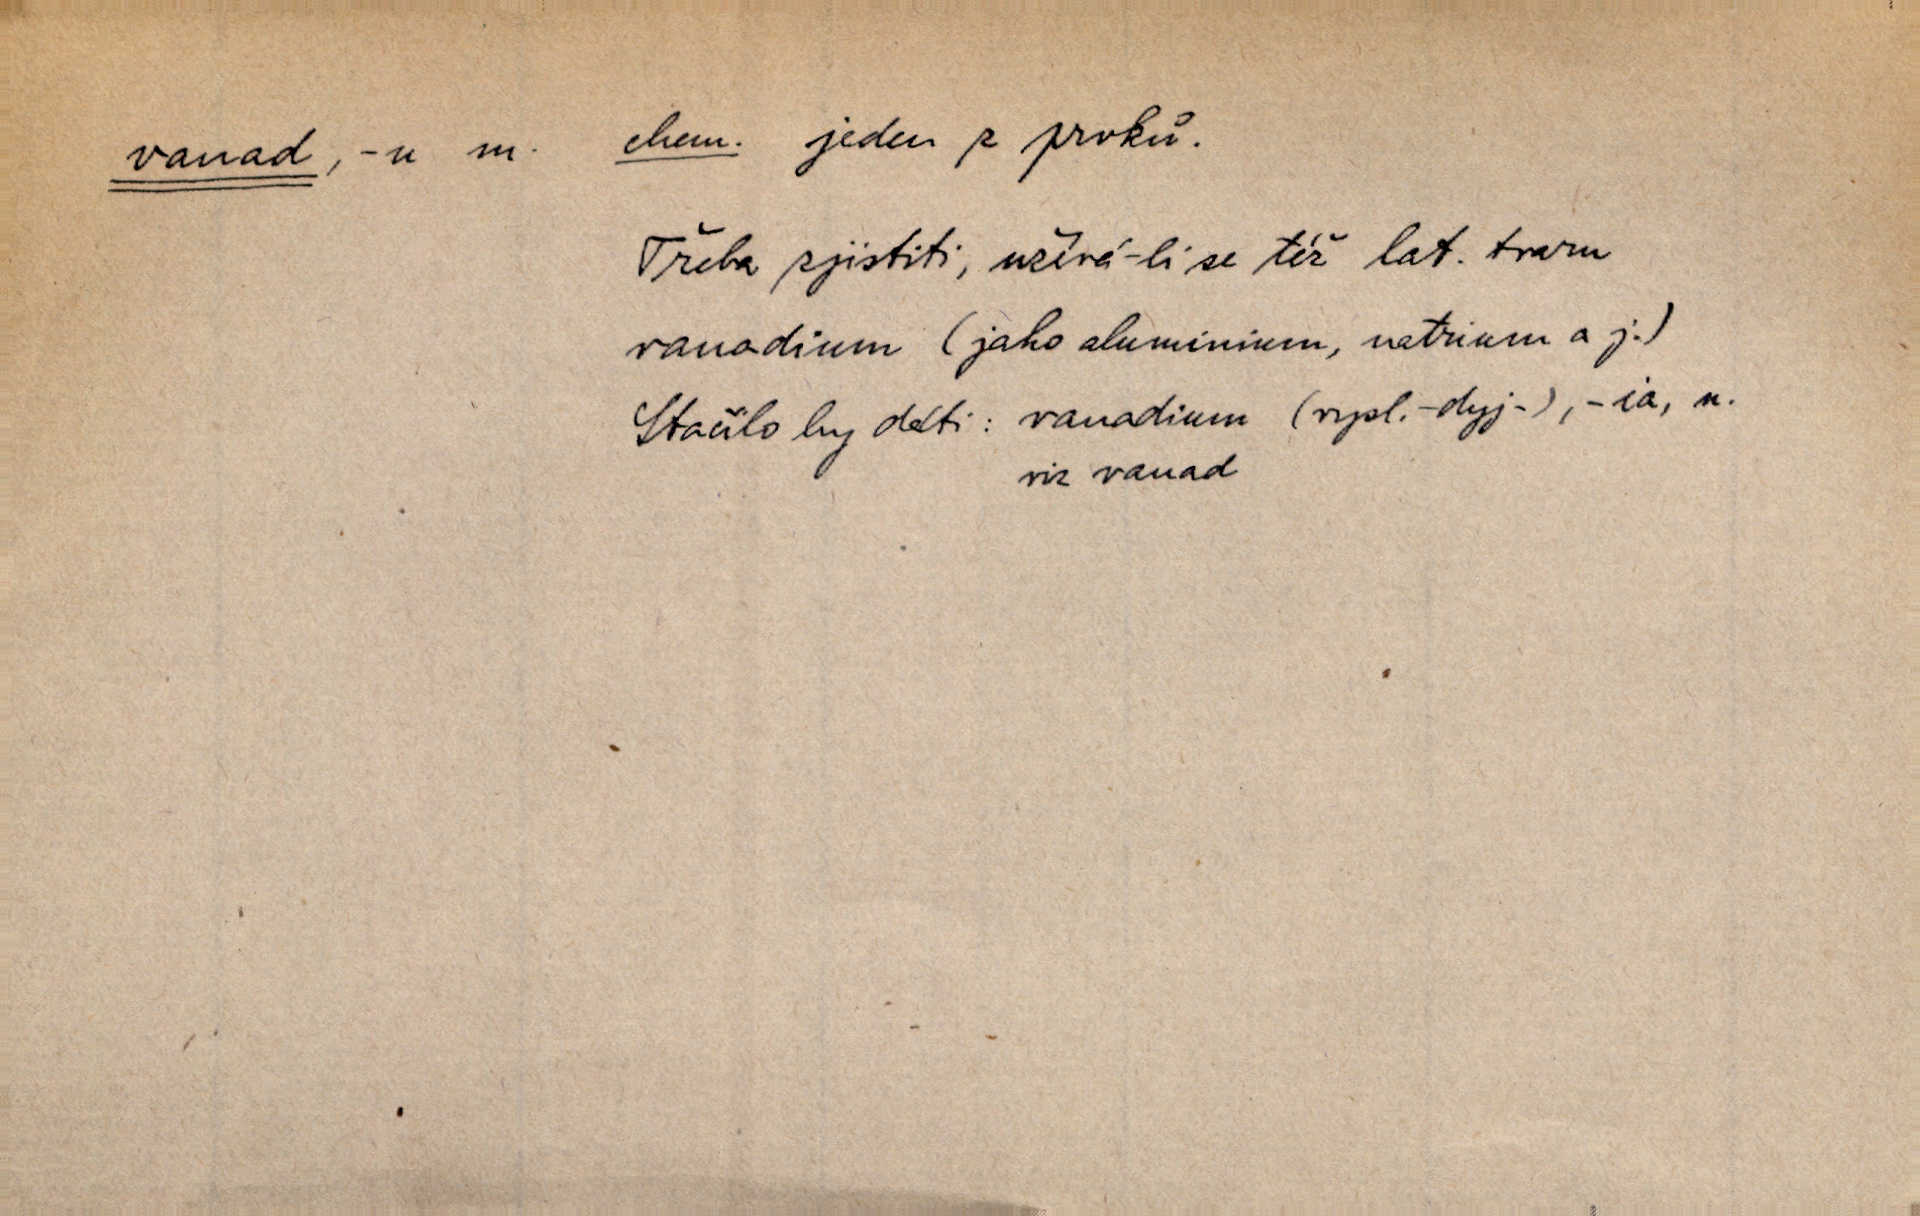 vanad, -u m. chem. jeden z prvků.
Třeba zjistiti, užívá-li se též lat. tvaru
vanadium (jako aluminium, natrium a j.)
Stačilo by dáti: vanadium (vysl. -dyj-), -ia, n.
viz vanad